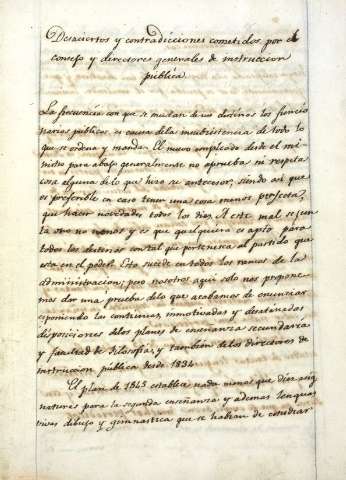 Desaciertos y contradicciones cometidos por el
consejo y directores generales de instruccion
publica.
La frecuencia con que se mudan de sus destinos los funcio
narios públicos, es causa de la insubsistencia de todo lo
que se ordena y manda. El nuevo empleado desde el mi
nistro para abajo generalmente no aprueba ni respeta
cosa alguna de lo que hizo su antecesor, siendo asi que
es preferible en caso tener una cosa menos perfecta,
que hacer novedades todos los dias. A este mal se jun
ta otro no menos y es que qualquiera es apto para
todos los destinos con tal que pertenezca al partido que
esta en el poder. Esto sucede en todos los ramos de la
administracion; pero nosotros aqui solo nos propone
mos dar una prueba de lo que acabamos de enunciar
esponiendo las continuas, inmotivadas y desatinadas
disposiciones de los planes de enseñanza secundaria
y facultad de filosofia, y tambien de los directores de
instruccion pública desde 1834.
El plan de 1845 establecia nada menos que diez asig
naturas para la segunda enseñanza y ademas lenguas
vivas dibujo y gimnastica que se habian de estudiar